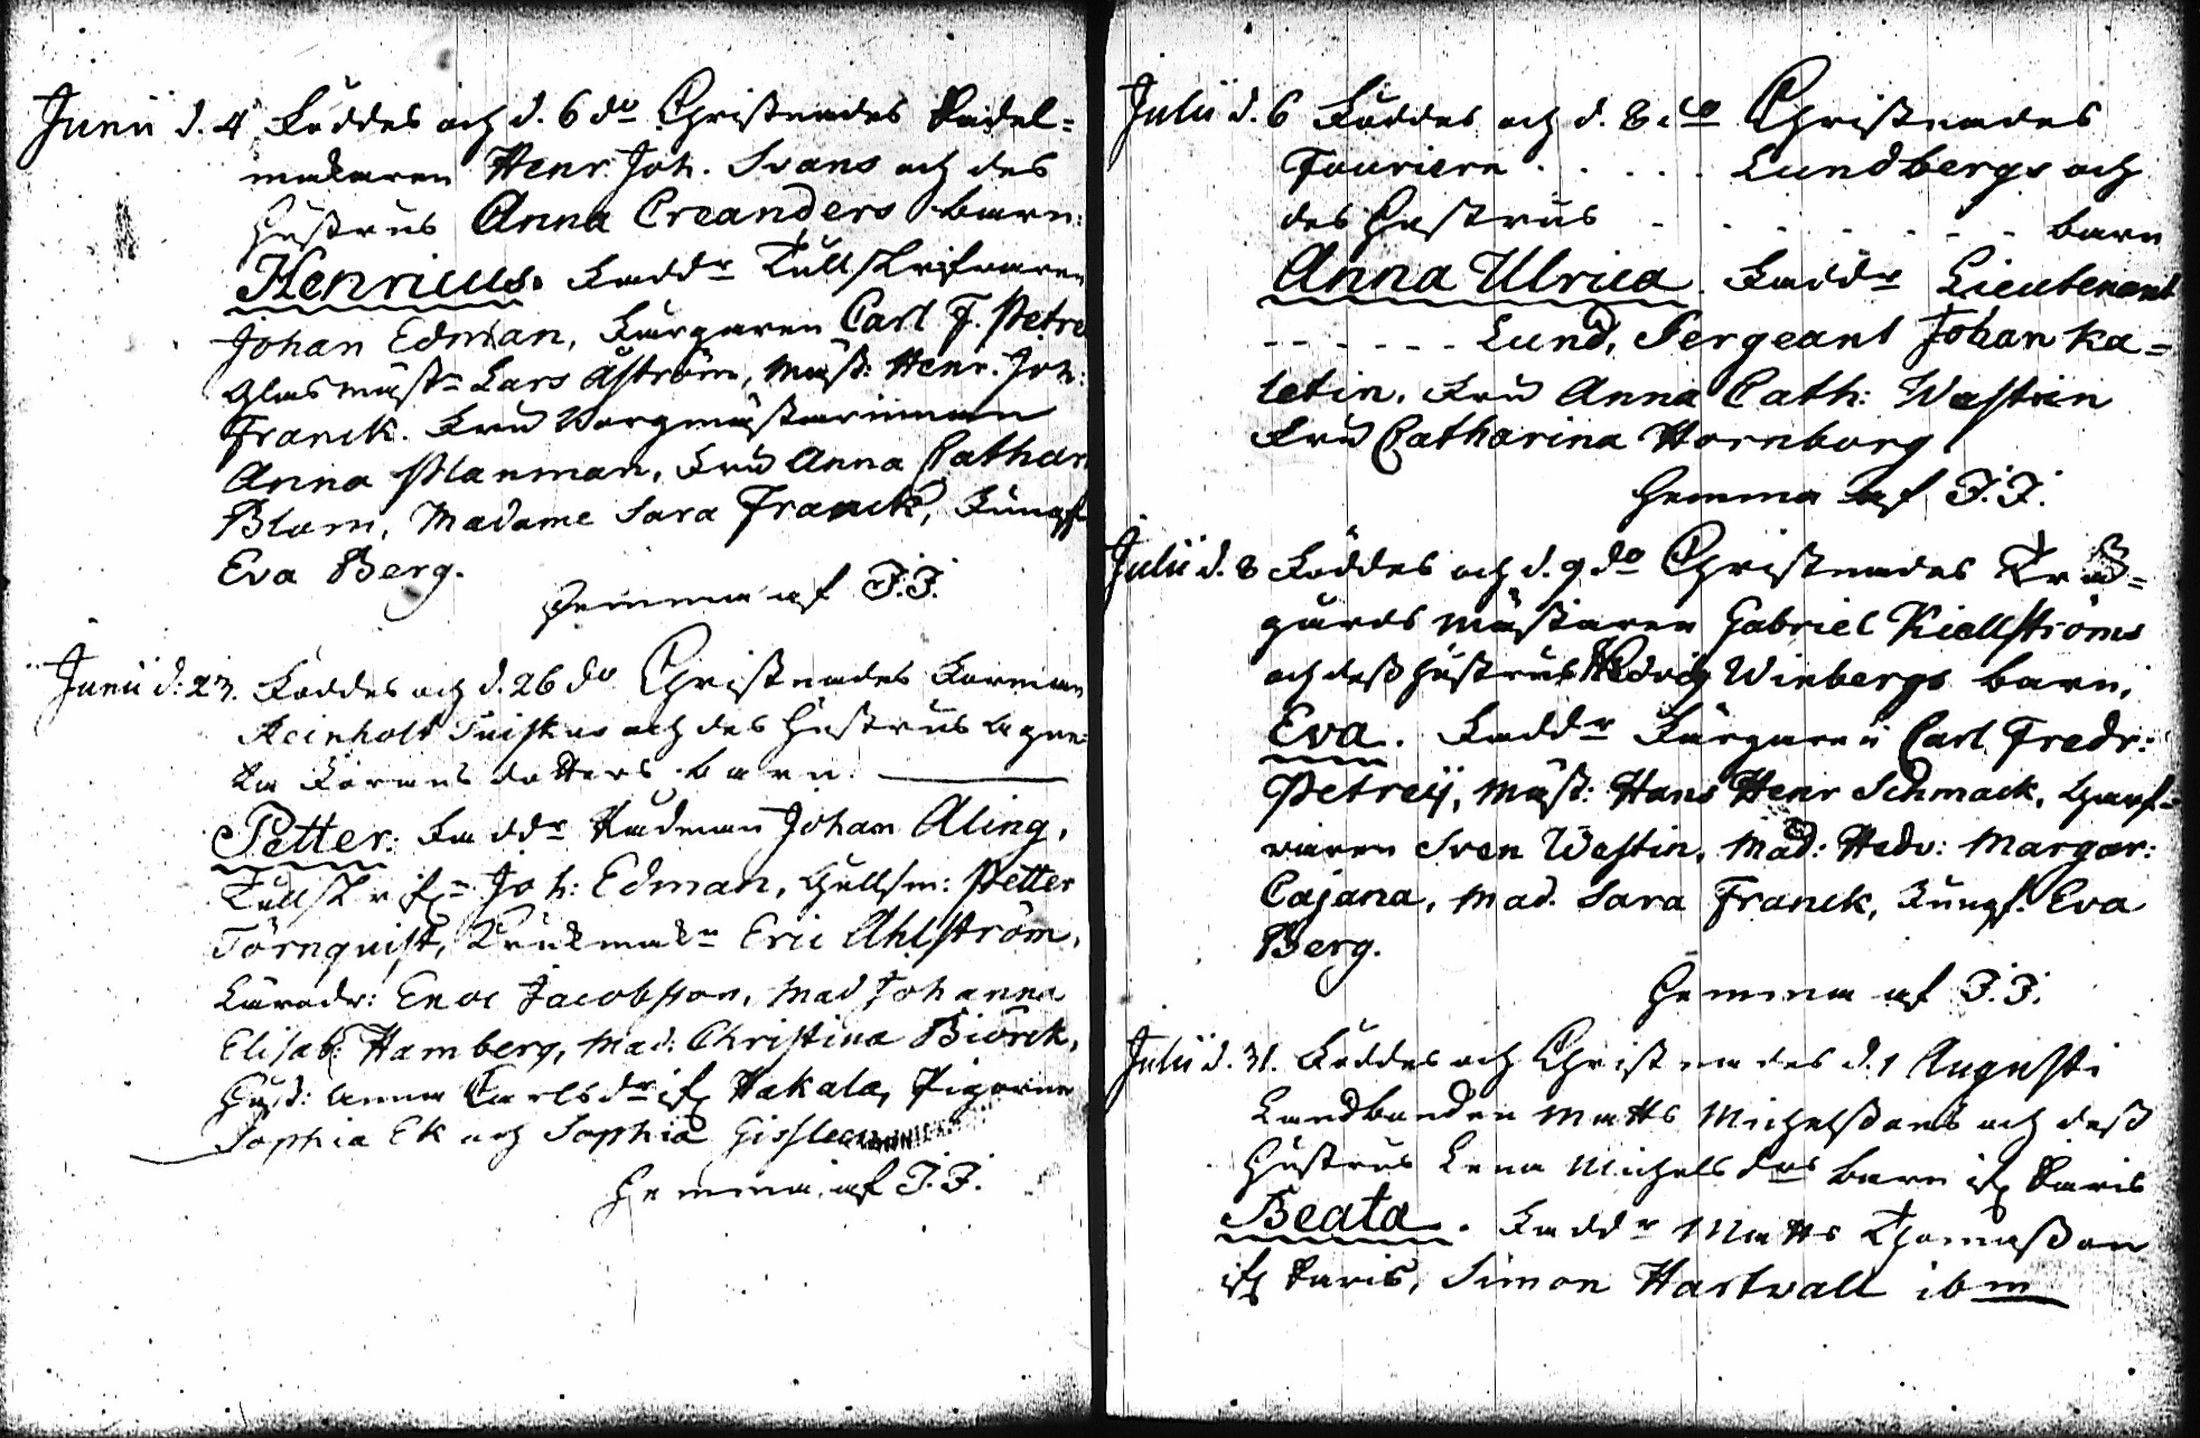 Junii d. 4 Föddes och d. 6 do Christnades Sadel=
makaren Henr. Joh. Svans och des
hustrus Anna Creanders barn:
Henricus. Faddr Tullskrifvaren
Johan Edman, Färgaren Carl F. Petre
Glasmäst= Lars Åström, Mäst: Henr. Joh:
Franck. Fru Borgmästarinnan
Anna Planman, Fru Anna Cathar
Blom, Madame Sara Franck, Jungf
Eva Berg.
hemma af J.J.
Junii d: 23. Föddes och d. 26 do Christnades Forman
Reinholt och des Hustrus Agne=
ta Görans dotters barn.
Petter. Faddr Rådman Johan Aling,
Tullskrif= Joh: Edman, Gullsm: Petter
Törnquist, Krukmakn Eric Ahlström,
Enoc Jacobsson, Mad Johanna
Elisab: Hamberg, Mad: Christina Biörck,
Hust: Anna Carlsdr if Hakala, Pigorne
Sophia Ek och Sophia
hemma af J.J.
Julii d. 6 Föddes och d. 8 do Christnades
Fouriern . . . . . Lundbergs och
des Hustrus - - - - - - - - barn
Anna Ulrica. Faddr Lieutenant
- - - - - - Lund, Sergeant Johan Ka=
letin, Fru Anna Cath: Wastin
Fru Catharina Hornborg
hemma af J.J.
Julii d. 8 Föddes och d. 9 do Christnades Trä=
gårds mästaren Gabriel Kiellströms
och dess hustrus Hedvig Winbergs barn,
Eva. Faddr Färgaren Carl Fredr:
Petreij, Mäst: Hans Henr Schmack, Garf=
varen Sven Westin, Mad: Hedv: Margar:
Cajana, Mad. Sara Franck, Jungf. Eva
Berg.
hemma af J.J.
Julii d. 31. Föddes och Christnades d. 1 Augusti
Landbonden Matts Michelssons och dess
Hustrus Lena Michels drs barn if Saris
Beata. Faddr Matts Thomasson
if Saris, Simon Hartvall ibm